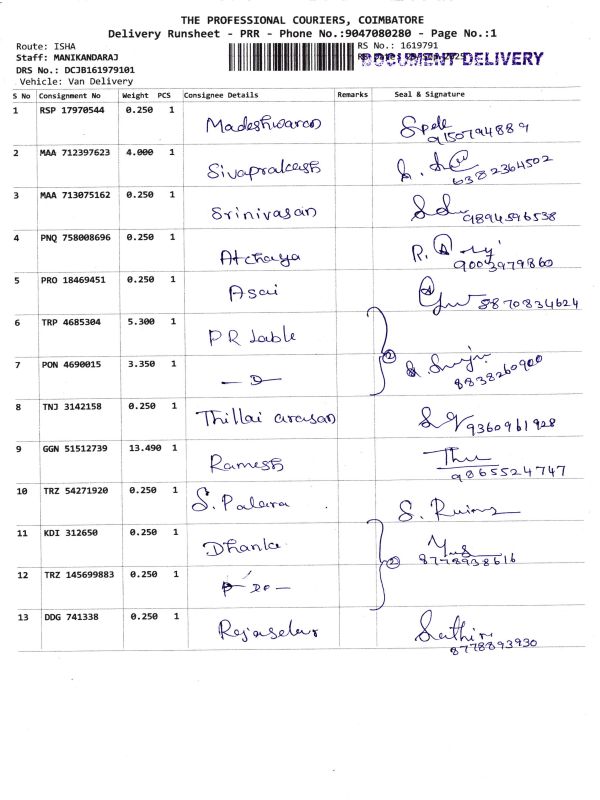 THE PROFESSIONAL COURIERS, COIMBATORE
Delivery Runsheet - PRR - Phone No.:9047080280 - Page No.:1
Route: ISHA
RS No.: 1619791
Staff: MANIKANDARAJ
DOCUMENT DELIVERY
DRS No.: DCJB161979101
Vehicle: Van Delivery
S No Consignment No Weight PCS Consignee Details Remarks Seal & Signature
1 RSP 17970544 0.250 1 Madeshwaran
9150794889
2 MAA 712397623 4.000 1 Sivaprakash
6382364502
3 MAA 713075162 0.250 1 Srinivasan
9894596538
4 PNQ 758008696 0.250 1 Atchaya
9003979860
5 PRO 18469451 0.250 1 Asai 8870834624
6 TRP 4685304 5.300 1 PR Lable
7 PON 4690015 3.350 1 — D — 2
8838260900
8 TNJ 3142158 0.250 1 Thillai arasan 9360961928
9 GGN 51512739 13.490 1 Ramesh
9865524747
10 TRZ 54271920 0.250 1 S.
11 KDI 312650 0.250 1
2 8778938616
12 TRZ 145699883 0.250 1 Do —
13 DDG 741338 0.250 1
8778893930